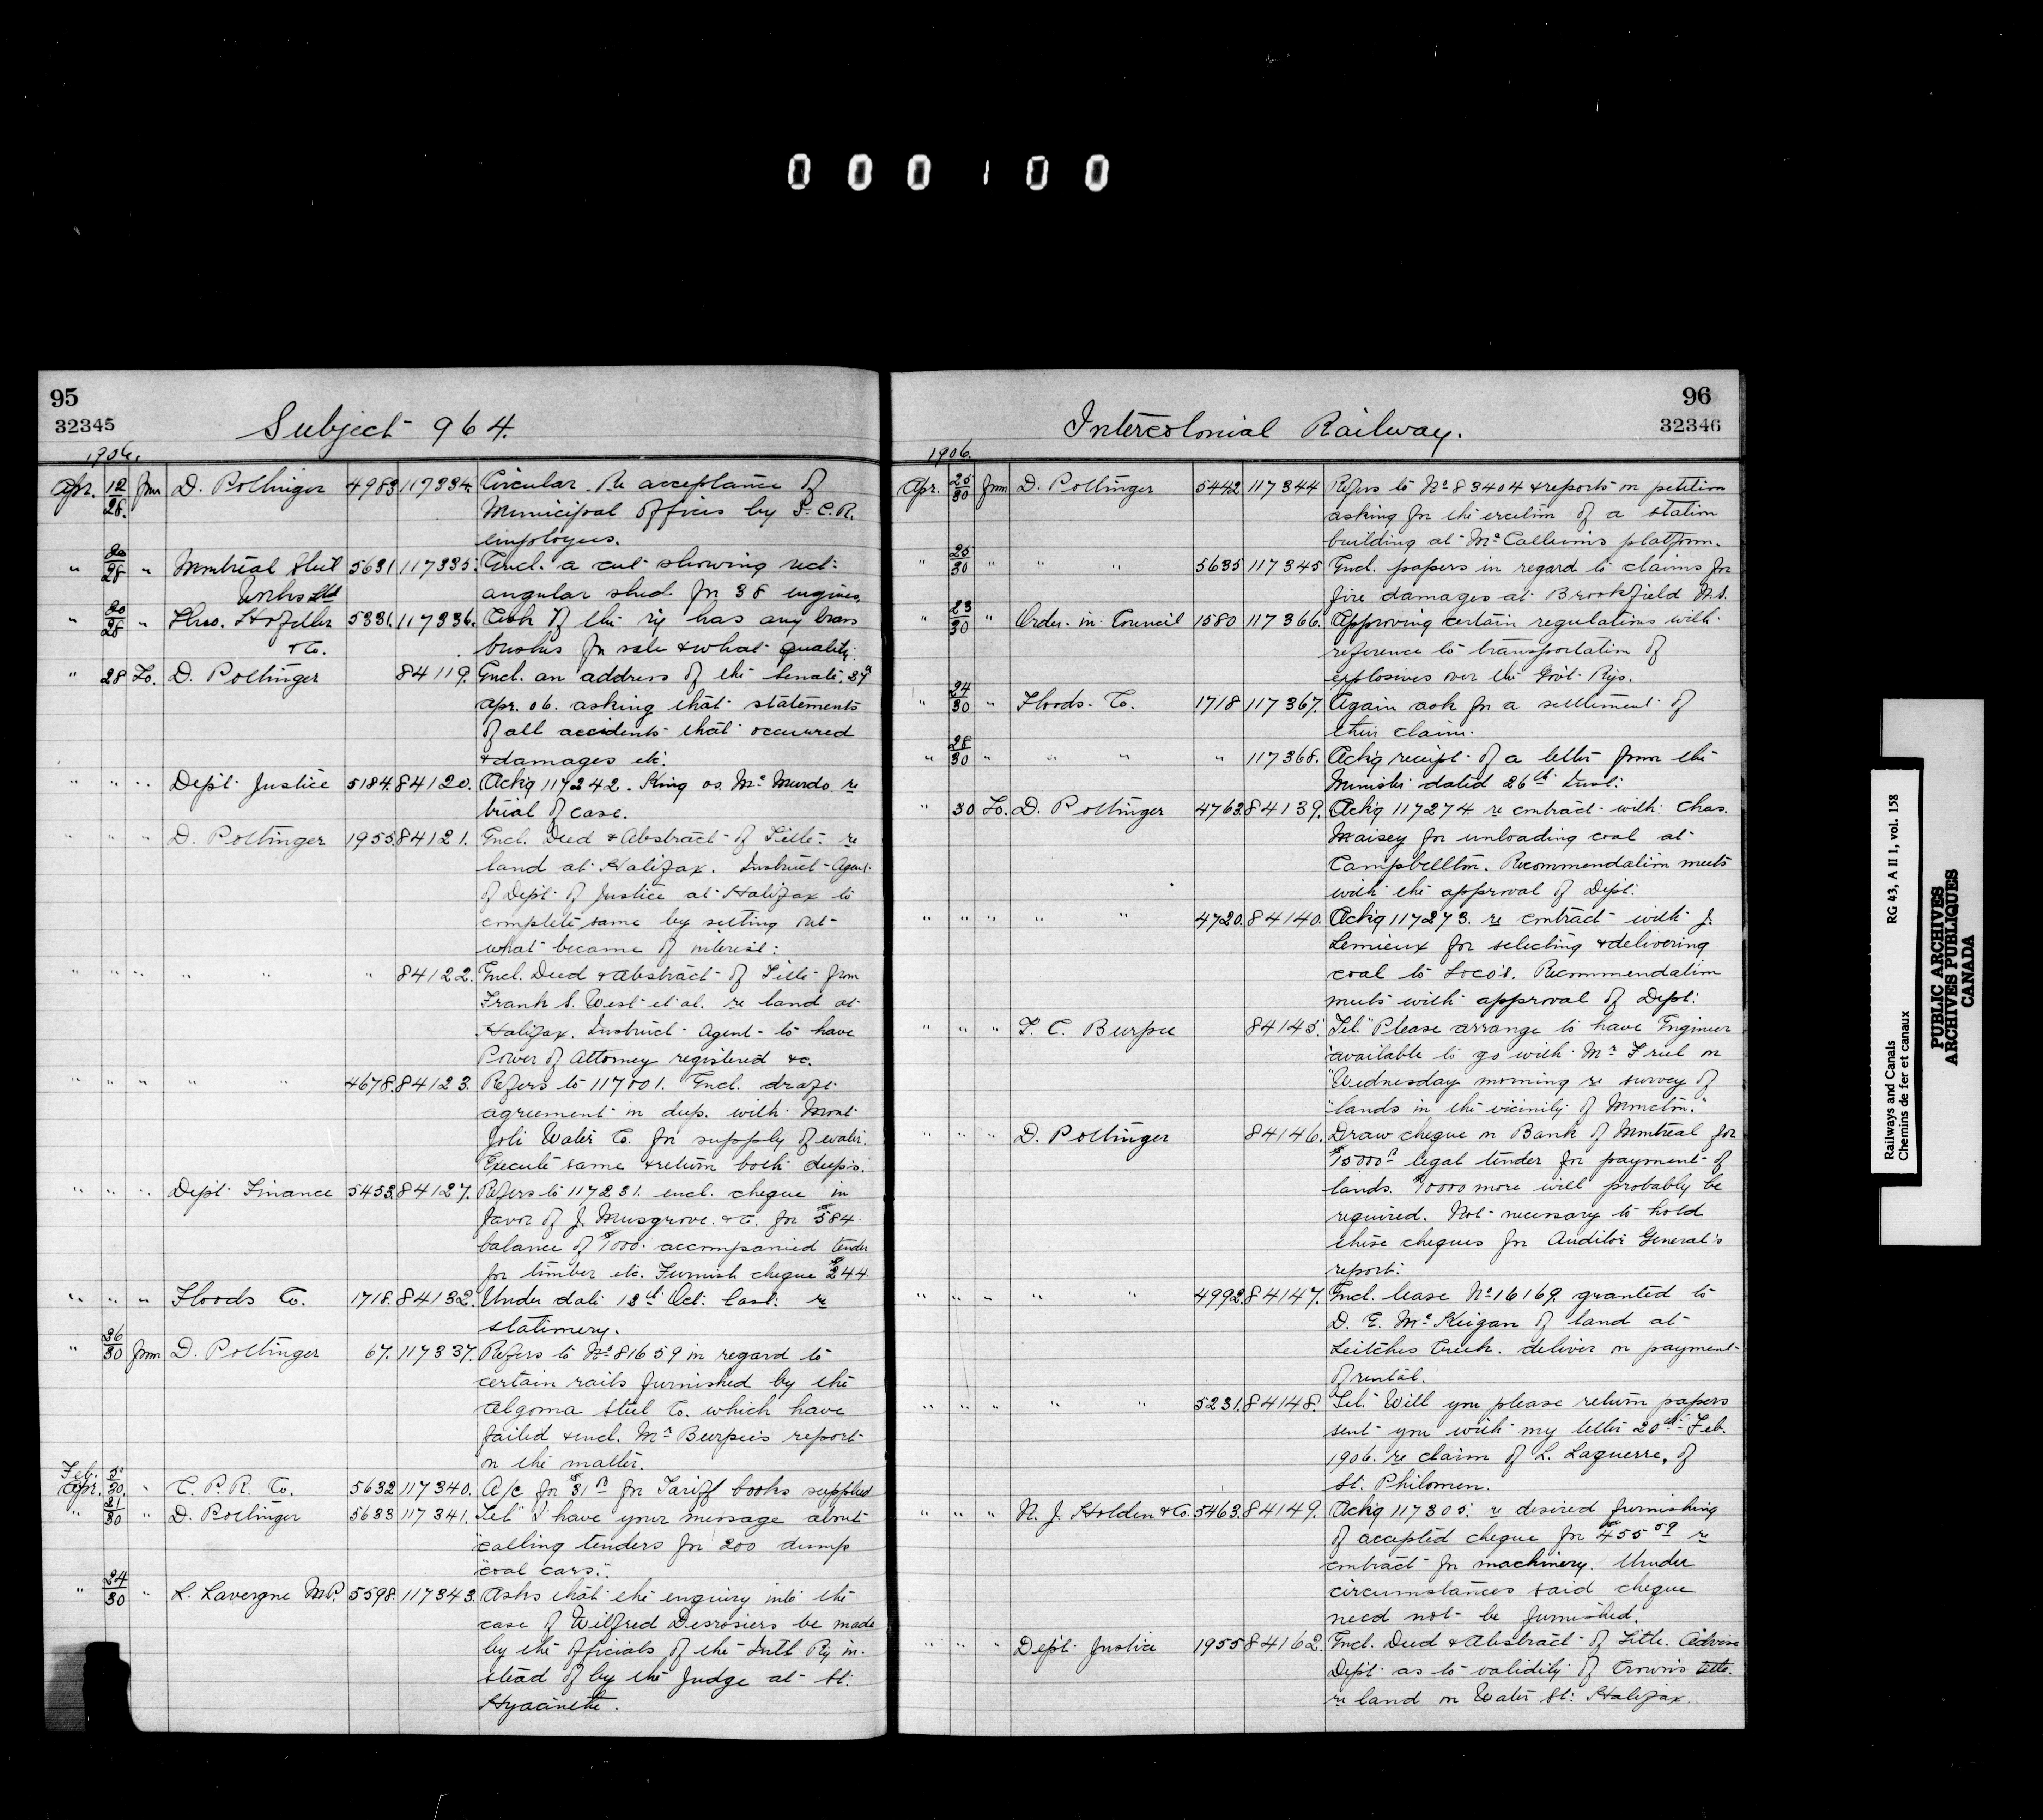 000100
95
32345
Subject 964.
1906.
Apr. 12/28. from D. Pottinger 4983 117334. Circular. Re acceptance of
Municipal Offices by I.C.R.
employees.
" 20/28 " Montreal Steel 5631 117335. Encl. a cut showing rect-
Works Ltd angular shed for 38 engines.
" 20/28 " Thos. 5331. 117336. Ask if the ry has any brass
& Co. bushes for sale & what quality.
" 28 To. D. Pottinger 84119. Encl. an address of the Senate,
Apr. 06. asking that statements
of all accidents that occurred
& damages etc.
" " " Dept. Justice 5184. 84120. Ackg 117242. King vs. McMurdo re
trial of case.
" " " D. Pottinger 1955. 84121. Encl. Deed & Abstract of Title re
land at Halifax. Instruct Agent
of Dept. of Justice at Halifax to
complete same by setting out
what became of interest.
" " " " " " 84122. Encl. Deed & Abstract of Title from
Frank S. West et al. re land at
Halifax. Instruct Agent to have
Power of Attorney registered &c.
" " " " " 4678. 84123. Refers to 117001. Encl. draft
agreement in dup. with Mont
Joli Water Co. for supply of water.
Execute same & return both dup's.
" " " Dept. Finance 5453. 84127. Refers to 117231. encl. cheque in
favor of J. Musgrove & Co. for $584.
balance of $1000. accompanied tender
for timber etc. Furnish cheque $244.
" " " Floods Co. 1718. 84132. Under date 13th Oct. last. re
stationery.
" 26/30 from D. Pottinger 67. 117337. Refers to No 81659 in regard to
certain rails furnished by the
Algoma Steel Co. which have
failed & encl. Mr Burpee's report
on the matter.
Feb. 5
Apr. 30. " C. P. R. Co. 5632 117340. A/c for $31 for Tariff books supplied
" 21/30 " D. Pottinger 5633 117341. Tel "I have your message about
"calling tenders for 200 dump
"coal cars."
" 24/30 " L. Lavergne M.P. 5598. 117343. Asks that the enquiry into the
case of Wilfred Desrosiers be made
by the officials of the Intl Ry in-
stead of by the Judge at St.
Hyacinthe.
96
32346
Intercolonial Railway.
1906.
Apr. 25/30 from D. Pottinger 5442 117344 Refers to No 83404 & reports on petition
asking for the erection of a station
building at McCallum's platform.
" 25/30 " " " 5635 117345 Encl. papers in regard to claims for
fire damages at Brookfield N.S.
" 23/30 " Order in Council 1580 117366. Approving certain regulations with
reference to transportation of
explosives over the Govt. Rys.
" 24/30 " Floods Co. 1718 117367. Again ask for a settlement of
their claim.
" 28/30 " " " " 117368. Ackg receipt of a letter from the
Minister dated 26th Inst.
" 30 To. D. Pottinger 4763. 84139. Ackg 117274 re contract with Chas.
Maisey for unloading coal at
Campbellton. Recommendation meets
with the approval of Dept.
" " " " " 4720. 84140. Ackg 117273. re contract with J.
Lemieux for selecting & delivering
coal to Loco's. Recommendation
meets with approval of Dept.
" " " T. C. Burpee 84145. Tel. "Please arrange to have Engineer
"available to go with Mr Friel on
"Wednesday morning re survey of
"lands in the vicinity of Moncton."
" " " D. Pottinger 84146. Draw cheque on Bank of Montreal for
$15000 legal tender for payment of
lands. $10000 more will probably be
required. Not necessary to hold
these cheques for Auditor General's
report.
" " " " " 4992. 84147. Encl. lease No 16169. granted to
D. E. McKeigan of land at
Leitches Creek. deliver on payment
of rental.
" " " " " 5231. 84148. Tel. "Will you please return papers
sent you with my letter 20th Feb.
1906. re claim of L. Laguerre, of
St. Philomen.
" " " N. J. Holden & Co. 5463. 84149. Ackg 117305. re desired furnishing
of accepted cheque for $455 59 re
contract for machinery. Under
circumstances said cheque
need not be furnished.
" " " Dept. Justice 1955 84162. Encl. Deed & Abstract of Title. Advise
Dept. as to validity of Crown's title.
re land on Water St. Halifax.
Railways and Canals RG 43, A II 1, vol. 158
Chemins de fer et canaux
PUBLIC ARCHIVES
ARCHIVES PUBLIQUES
CANADA